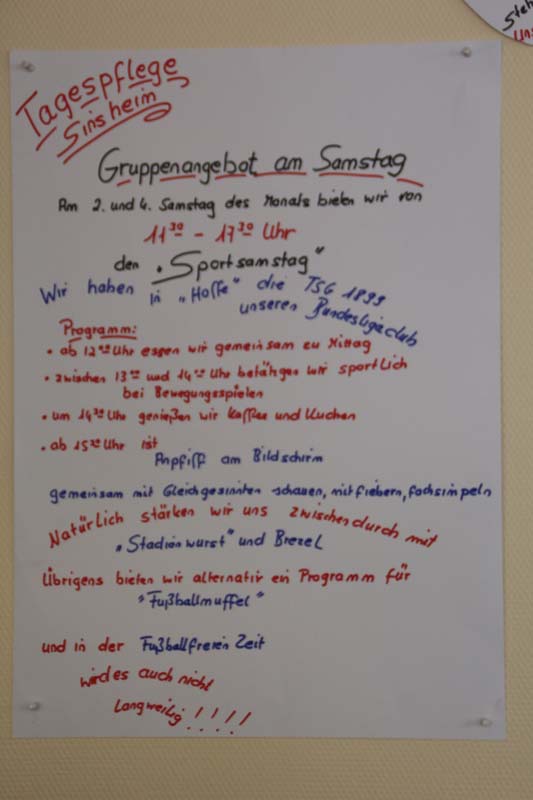 Tagespflege
Sinsheim
Gruppenangebot am Samstag
Am 2. und 4. Samstag des Monats bieten wir von
11³⁰ - 17³⁰ Uhr
den "Sportsamstag"
Wir haben in "Hoffe" die TSG 1899
unseren Bundesligaclub
Programm:
• ab 12⁰⁰ Uhr essen wir gemeinsam zu Mittag
• zwischen 13⁰⁰ und 14⁰⁰ Uhr betätigen wir sportlich
bei Bewegungsspielen
• um 14³⁰ Uhr genießen wir Kaffee und Kuchen
• ab 15³⁰ Uhr ist
Anpfiff am Bildschirm
gemeinsam mit Gleichgesinnten schauen, mitfiebern, fachsimpeln
Natürlich stärken wir uns zwischendurch mit
"Stadionwurst" und Brezel
Übrigens bieten wir alternativ ein Programm für
"Fußballmuffel"
und in der Fußballfreien Zeit
wird es auch nicht
langweilig!!!!